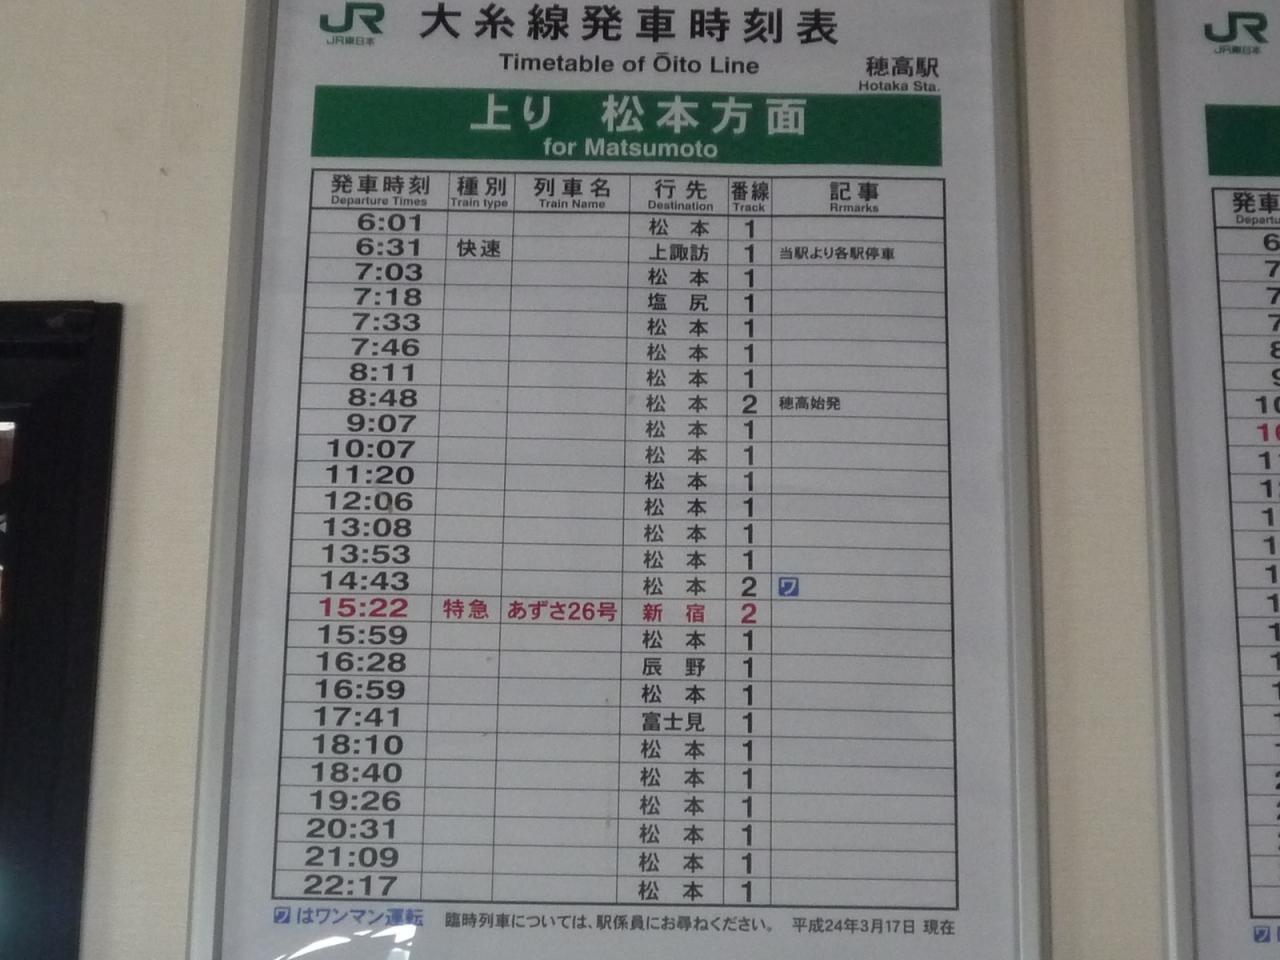 JR
JR東日本
大糸線発車時刻表
Timetable of Ōito Line
穂高駅
Hotaka Sta.
上り 松本方面
for Matsumoto
発車時刻 種別 列車名 行先 番線 記事
Departure Times Train type Train Name Destination Track Rrmarks
6:01 松本 1
6:31 快速 上諏訪 1 当駅より各駅停車
7:03 松本 1
7:18 塩尻 1
7:33 松本 1
7:46 松本 1
8:11 松本 1
8:48 松本 2 穂高始発
9:07 松本 1
10:07 松本 1
11:20 松本 1
12:06 松本 1
13:08 松本 1
13:53 松本 1
14:43 松本 2 ワ
15:22 特急 あずさ26号 新宿 2
15:59 松本 1
16:28 辰野 1
16:59 松本 1
17:41 富士見 1
18:10 松本 1
18:40 松本 1
19:26 松本 1
20:31 松本 1
21:09 松本 1
22:17 松本 1
ワはワンマン運転 臨時列車については、駅係員にお尋ねください。 平成24年3月17日 現在
JR
JR東日本
発車